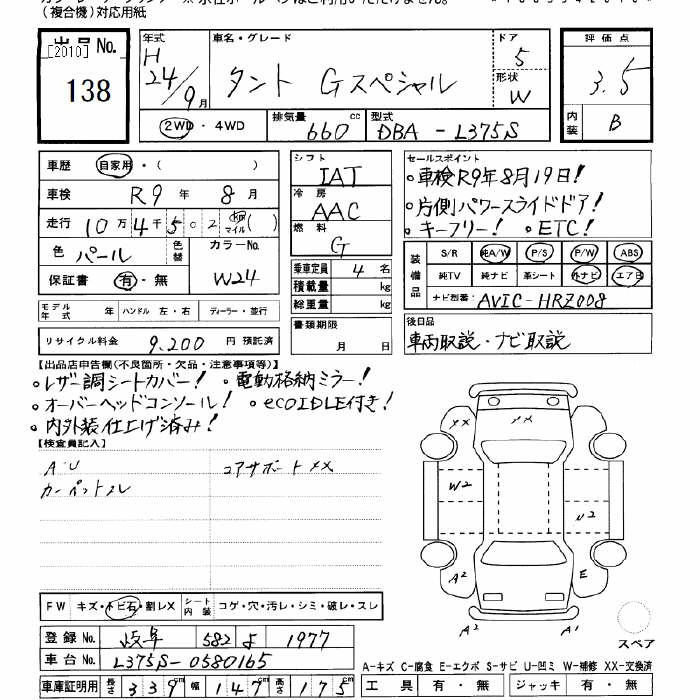 (複合機)対応用紙
出品No. [2010] 138
年式 H24/9月
車名・グレード タント Gスペシャル
ドア 5
形状 W
2WD・4WD
排気量 660 cc
型式 DBA-L375S
評価点 3.5
内装 B
車歴 自家用・( )
車検 R9年 8月
走行 10万4千502 km マイル ( )
色 パール 色替 カラーNo. W24
保証書 有・無
モデル年式 年 ハンドル 左・右 ディーラー・並行
リサイクル料金 9,200 円 預託済
シフト IAT
冷房 AAC
燃料 G
乗車定員 4 名
積載量 kg
総重量 kg
書類期限 月 日
セールスポイント
・車検R9年8月19日!
・片側パワースライドドア!
・キーフリー! ・ETC!
装備品 S/R 純A/W P/S P/W ABS
純TV 純ナビ 革シート 外ナビ エアB
ナビ型番: AVIC-HRZ008
後日品
車両取説・ナビ取説
【出品店申告欄(不良箇所・欠品・注意事項等)】
・レザー調シートカバー! ・電動格納ミラー!
・オーバーヘッドコンソール! ・ecoIDLE付き!
・内外装仕上げ済み!
【検査員記入】
A・U コアサポートXX
カーペットスレ
XX
XX
W2
U2
A2
E
A2
A1
スペア
FW キズ・トビ石・割レX シート内装 コゲ・穴・汚レ・シミ・破レ・スレ
登録No. 岐阜 582 よ 1977
車台No. L375S-0580165
車庫証明用 長さ 339cm 幅 147cm 高さ 175cm
A-キズ C-腐食 E-エクボ S-サビ U-凹ミ W-補修 XX-交換済
工具 有・無 ジャッキ 有・無